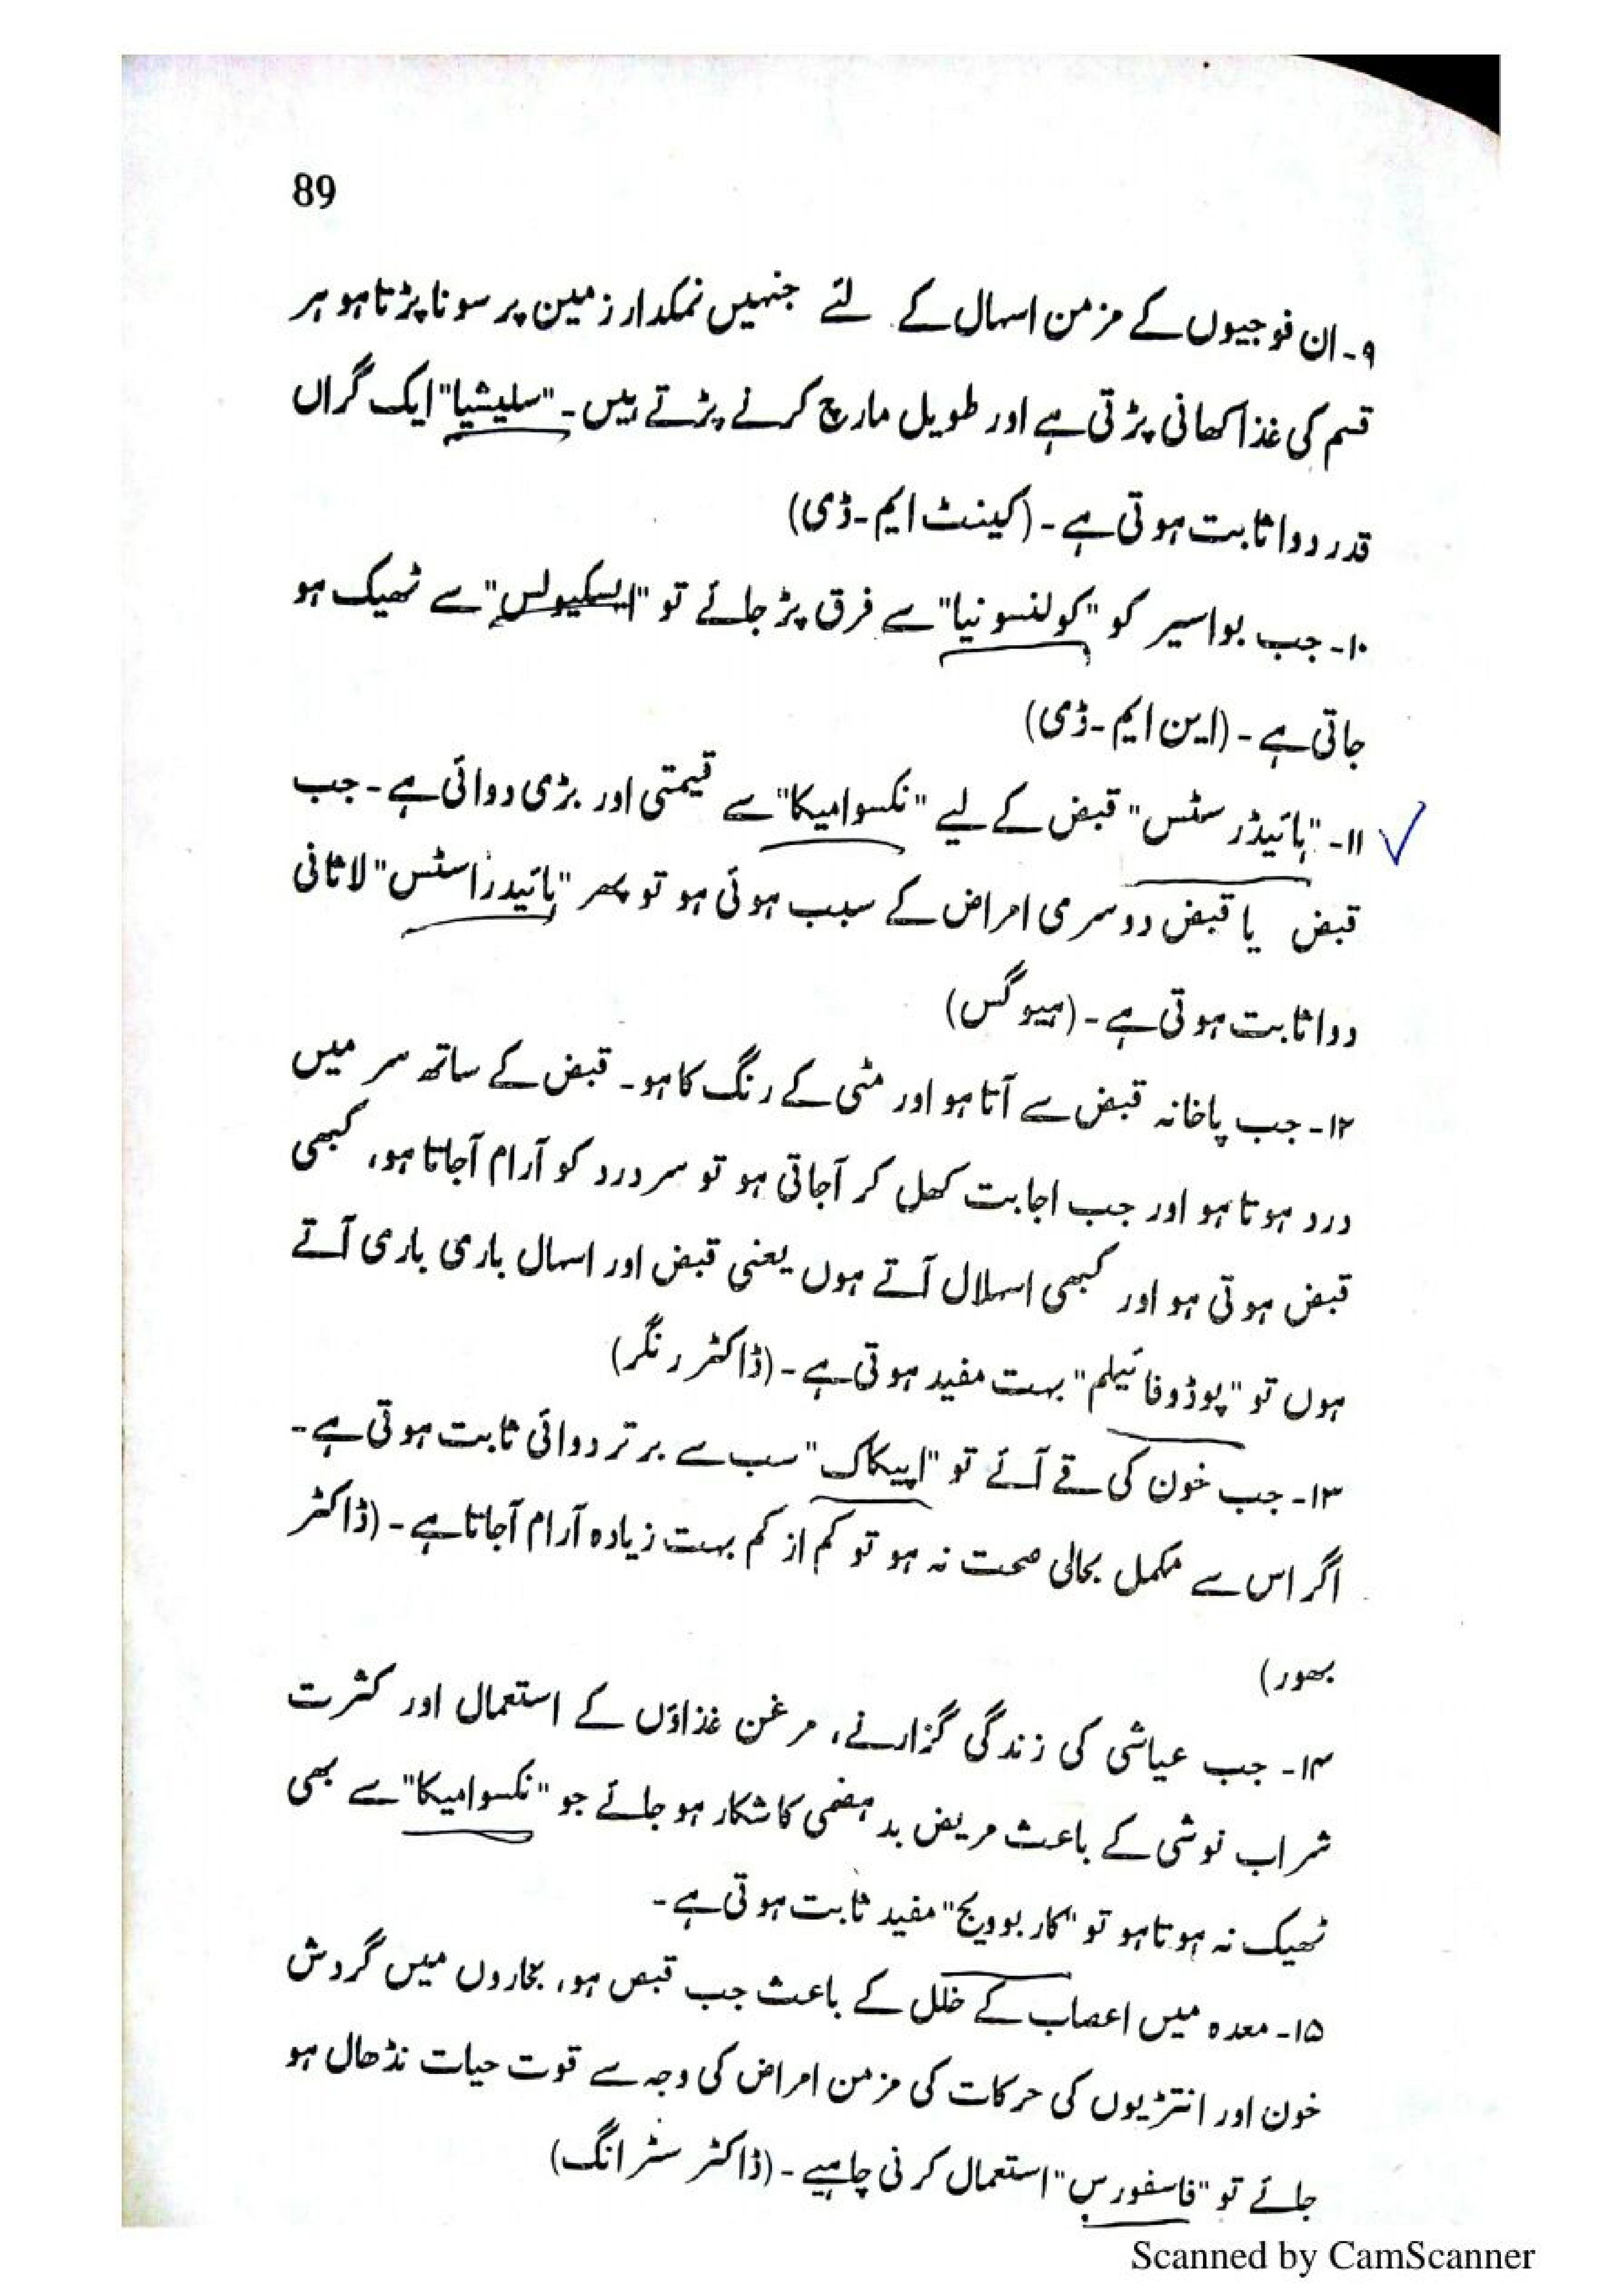 89
۹۔ ان فوجیوں کے مزمن اسہال کے لئے جنہیں نمکدار زمین پر سونا پڑتا ہو ہر
قسم کی غذا کھانی پڑتی ہے اور طویل مارچ کرنے پڑتے ہیں۔ "سلیشیا" ایک گراں
قدر دوا ثابت ہوتی ہے۔ (کینٹ ایم۔ڈی)
۱۰۔ جب بواسیر کو "کولنسونیا" سے فرق پڑ جائے تو "ایسکیولس" سے ٹھیک ہو
جاتی ہے۔ (این ایم۔ڈی)
۱۱۔ "ہائیڈر سٹس" قبض کے لیے "نکسوامیکا" سے قیمتی اور بڑی دوائی ہے۔ جب
قبض یا قبض دوسری امراض کے سبب ہوئی ہو تو پھر "ہائیدراسٹس" لاثانی
دوا ثابت ہوتی ہے۔ (ہیوگس)
۱۲۔ جب پاخانہ قبض سے آتا ہو اور مٹی کے رنگ کا ہو۔ قبض کے ساتھ سر میں
درد ہوتا ہو اور جب اجابت کھل کر آجاتی ہو تو سر درد کو آرام آجاتا ہو، کبھی
قبض ہوتی ہو اور کبھی اسہلال آتے ہوں یعنی قبض اور اسہال باری باری آتے
ہوں تو "پوڈوفائیلم" بہت مفید ہوتی ہے۔ (ڈاکٹر رنگر)
۱۳۔ جب خون کی قے آئے تو "اپیکاک" سب سے برتر دوائی ثابت ہوتی ہے۔
اگر اس سے مکمل بحالی صحت نہ ہو تو کم از کم بہت زیادہ آرام آجاتا ہے۔ (ڈاکٹر
بھور)
۱۴۔ جب عیاشی کی زندگی گزارنے، مرغن غذاؤں کے استعمال اور کثرت
شراب نوشی کے باعث مریض بد ہضمی کا شکار ہو جائے جو "نکسوامیکا" سے بھی
ٹھیک نہ ہوتا ہو تو "کاربوویج" مفید ثابت ہوتی ہے۔
۱۵۔ معدہ میں اعصاب کے خلل کے باعث جب قبص ہو، بخاروں میں گردش
خون اور انتڑیوں کی حرکات کی مزمن امراض کی وجہ سے قوت حیات نڈھال ہو
جائے تو "فاسفورس" استعمال کرنی چاہیے۔ (ڈاکٹر سٹرانگ)
Scanned by CamScanner